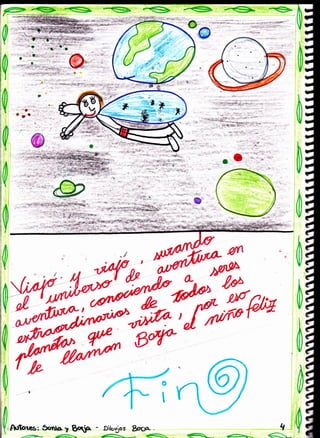 Viajó y viajó, surcando
el universo de aventura en
aventura, conociendo a seres
extraordinarios de todos los
planetas que visita, por eso
le llaman Borja el niño feliz
Fin
Autores: Sonia y Borja - Dibujos Borja.
4